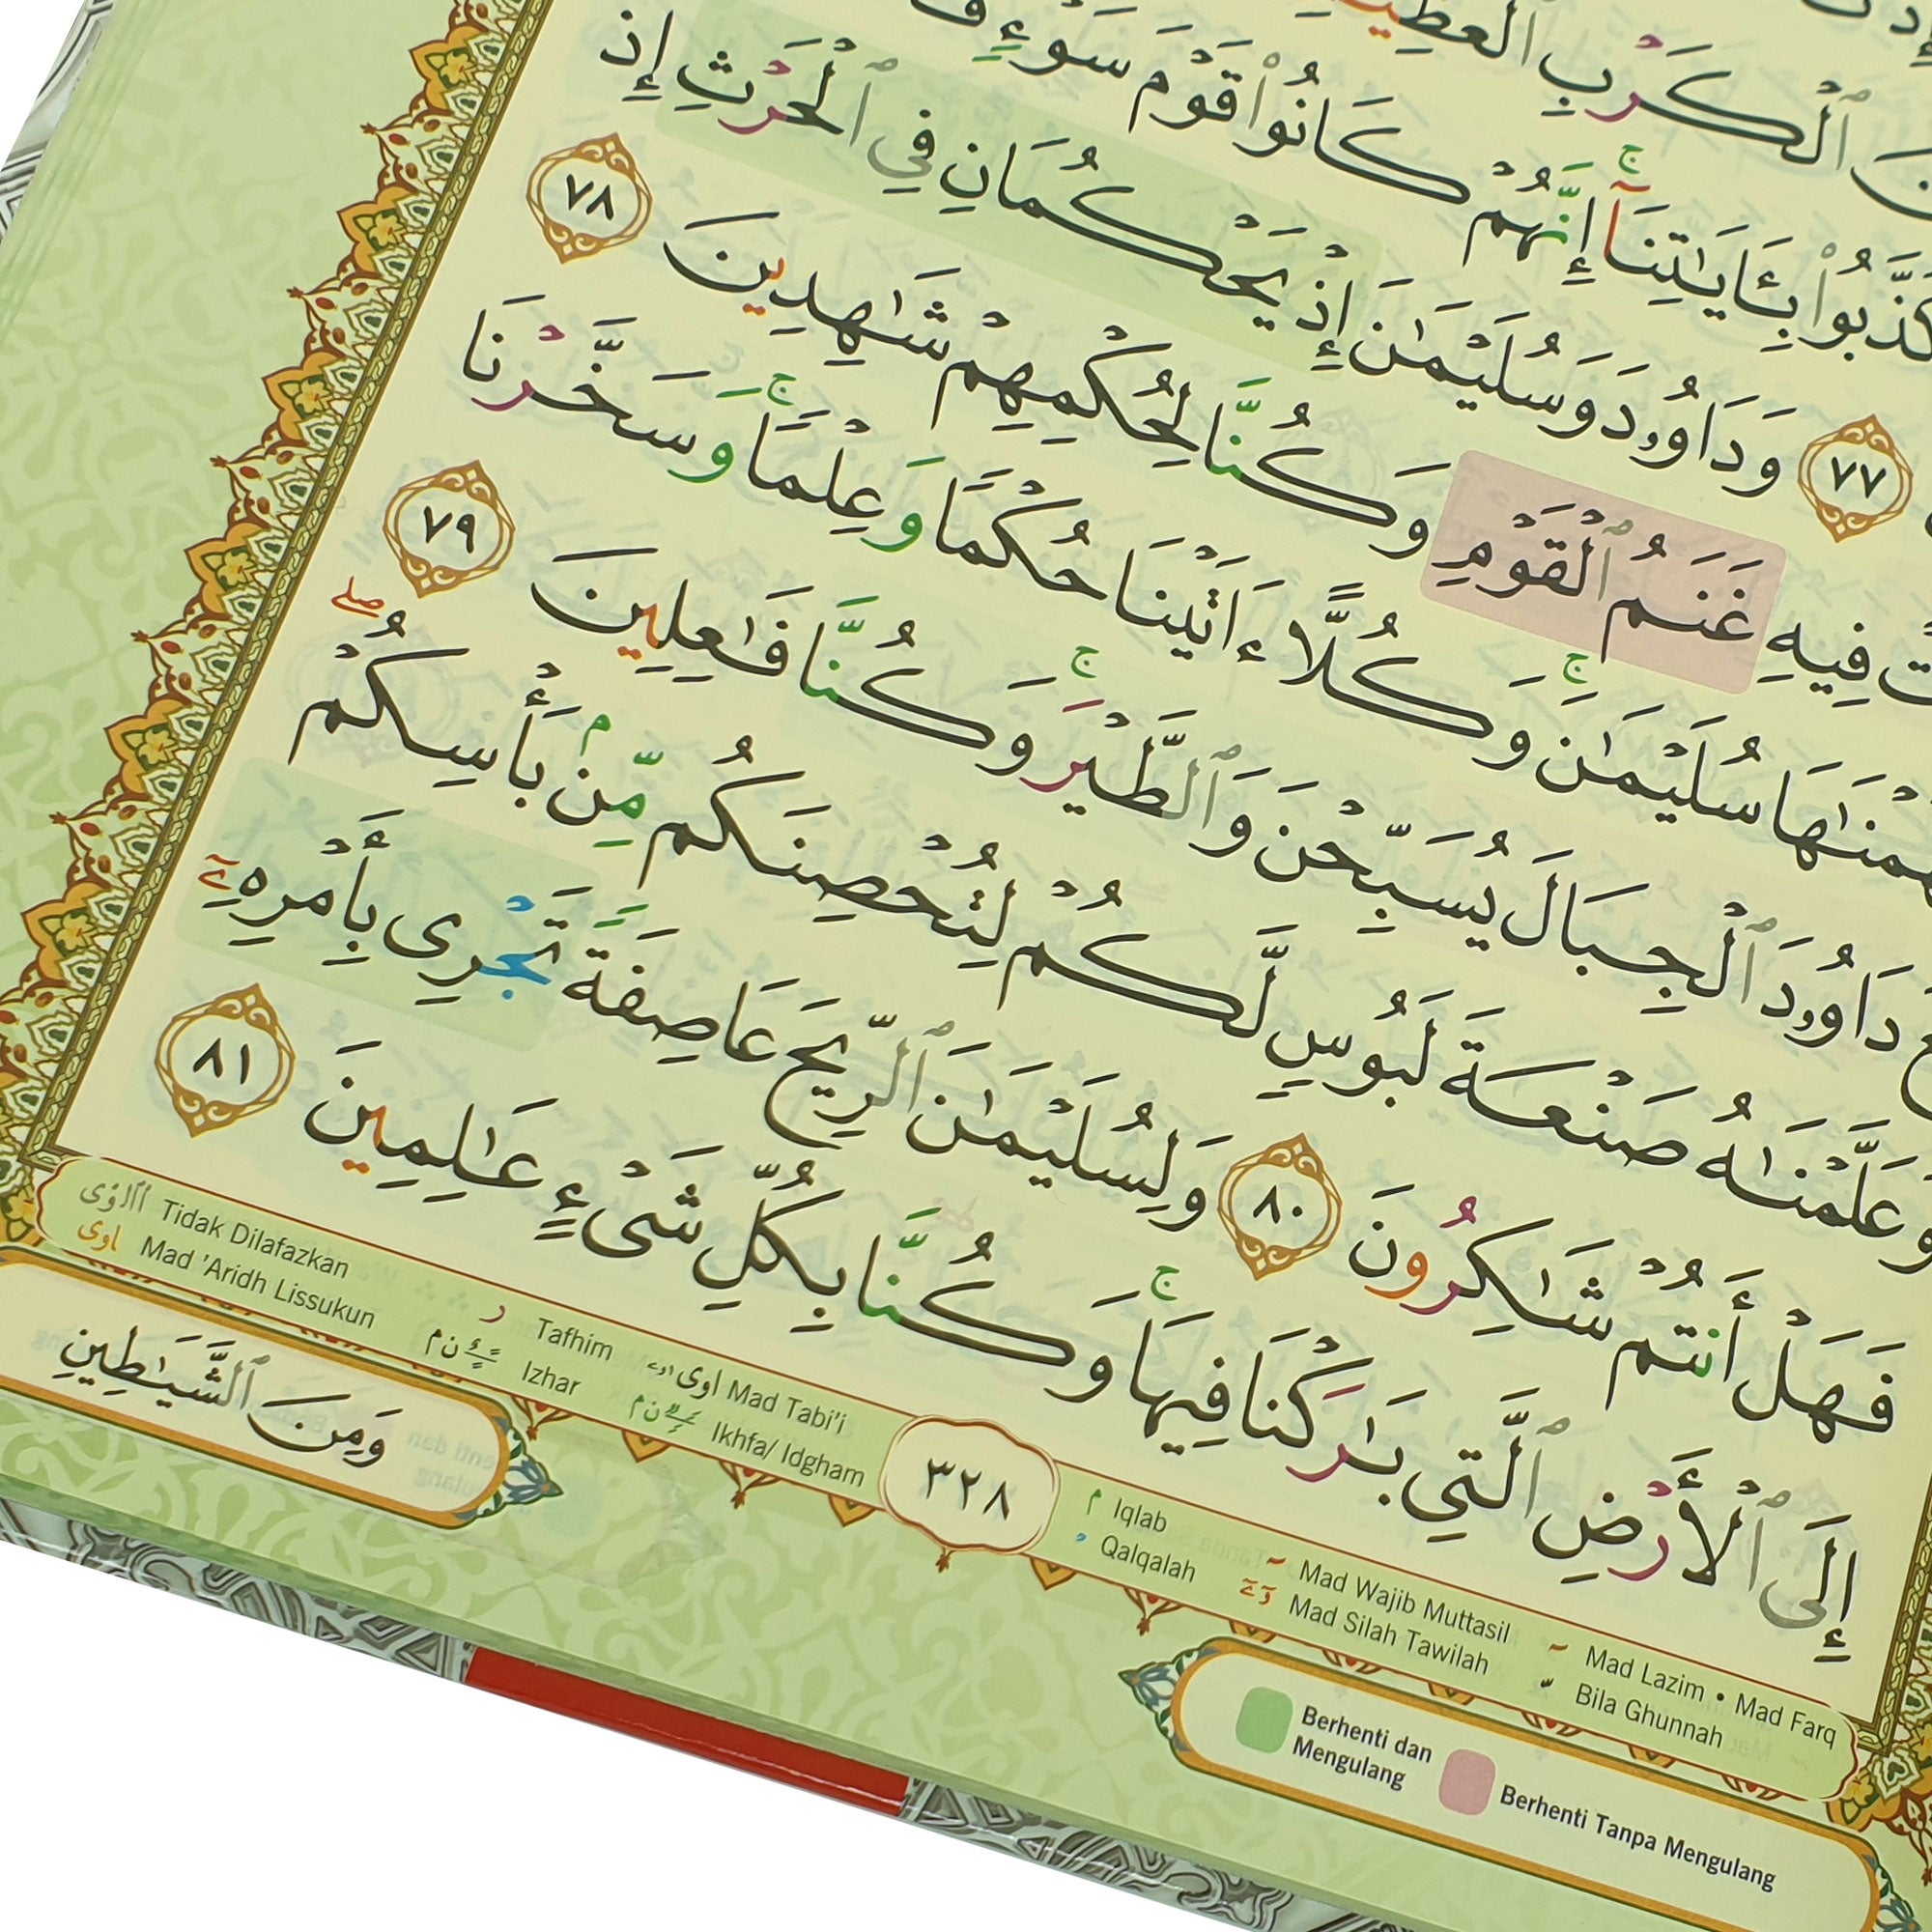 ٱلْكَرْبِ ٱلْعَظِيمِ
كَذَّبُوا۟ بِـَٔايَـٰتِنَآ ۚ إِنَّهُمْ كَانُوا۟ قَوْمَ سَوْءٍ
٧٧ وَدَاوُۥدَ وَسُلَيْمَـٰنَ إِذْ يَحْكُمَانِ فِى ٱلْحَرْثِ إِذْ
فِيهِ غَنَمُ ٱلْقَوْمِ وَكُنَّا لِحُكْمِهِمْ شَـٰهِدِينَ ٧٨
سُلَيْمَـٰنَ ۚ وَكُلًّا ءَاتَيْنَا حُكْمًا وَعِلْمًا ۚ وَسَخَّرْنَا
دَاوُۥدَ ٱلْجِبَالَ يُسَبِّحْنَ وَٱلطَّيْرَ ۚ وَكُنَّا فَـٰعِلِينَ ٧٩
وَعَلَّمْنَـٰهُ صَنْعَةَ لَبُوسٍ لَّكُمْ لِتُحْصِنَكُم مِّنۢ بَأْسِكُمْ ۖ
فَهَلْ أَنتُمْ شَـٰكِرُونَ ٨٠ وَلِسُلَيْمَـٰنَ ٱلرِّيحَ عَاصِفَةً تَجْرِى بِأَمْرِهِۦٓ
إِلَى ٱلْأَرْضِ ٱلَّتِى بَـٰرَكْنَا فِيهَا ۚ وَكُنَّا بِكُلِّ شَىْءٍ عَـٰلِمِينَ ٨١
Tidak Dilafazkan
Mad 'Aridh Lissukun
Tafhim
Izhar
Mad Tabi'i
Ikhfa/ Idgham
٣٢٨
Iqlab
Qalqalah
Mad Wajib Muttasil
Mad Silah Tawilah
Mad Lazim • Mad Farq
Bila Ghunnah
وَمِنَ ٱلشَّيَـٰطِينِ
Berhenti dan
Mengulang
Berhenti Tanpa Mengulang